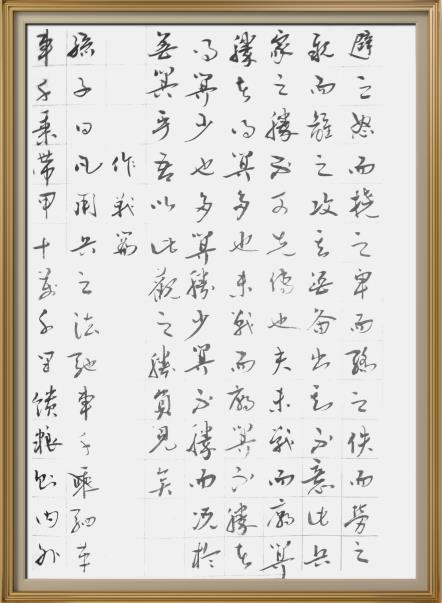 避之怒而撓之卑而驕之佚而勞之
親而離之攻其無備出其不意此兵
家之勝不可先傳也夫未戰而廟算
勝者得算多也未戰而廟算不勝者
得算少也多算勝少算不勝而況於
無算乎吾以此觀之勝負見矣
作戰篇
孫子曰凡用兵之法馳車千乘駟革
車千乘帶甲十萬千里饋糧則內外